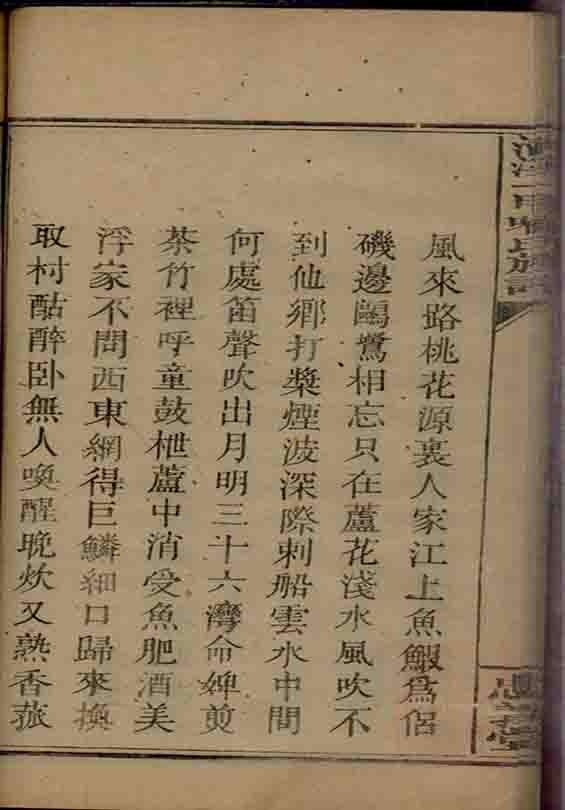 風來路桃花源裏人家江上魚鰕爲侣
磯邊鷗鷺相忘只在蘆花淺水風吹不
到仙鄉打槳煙波深際刺船雲水中間
何處笛聲吹出月明三十六灣命婢剪
茶竹裡呼童鼓枻蘆中消受魚肥酒美
浮家不問西東網得巨鱗細口歸來換
取村酤醉卧無人喚醒晚炊又熟香菰